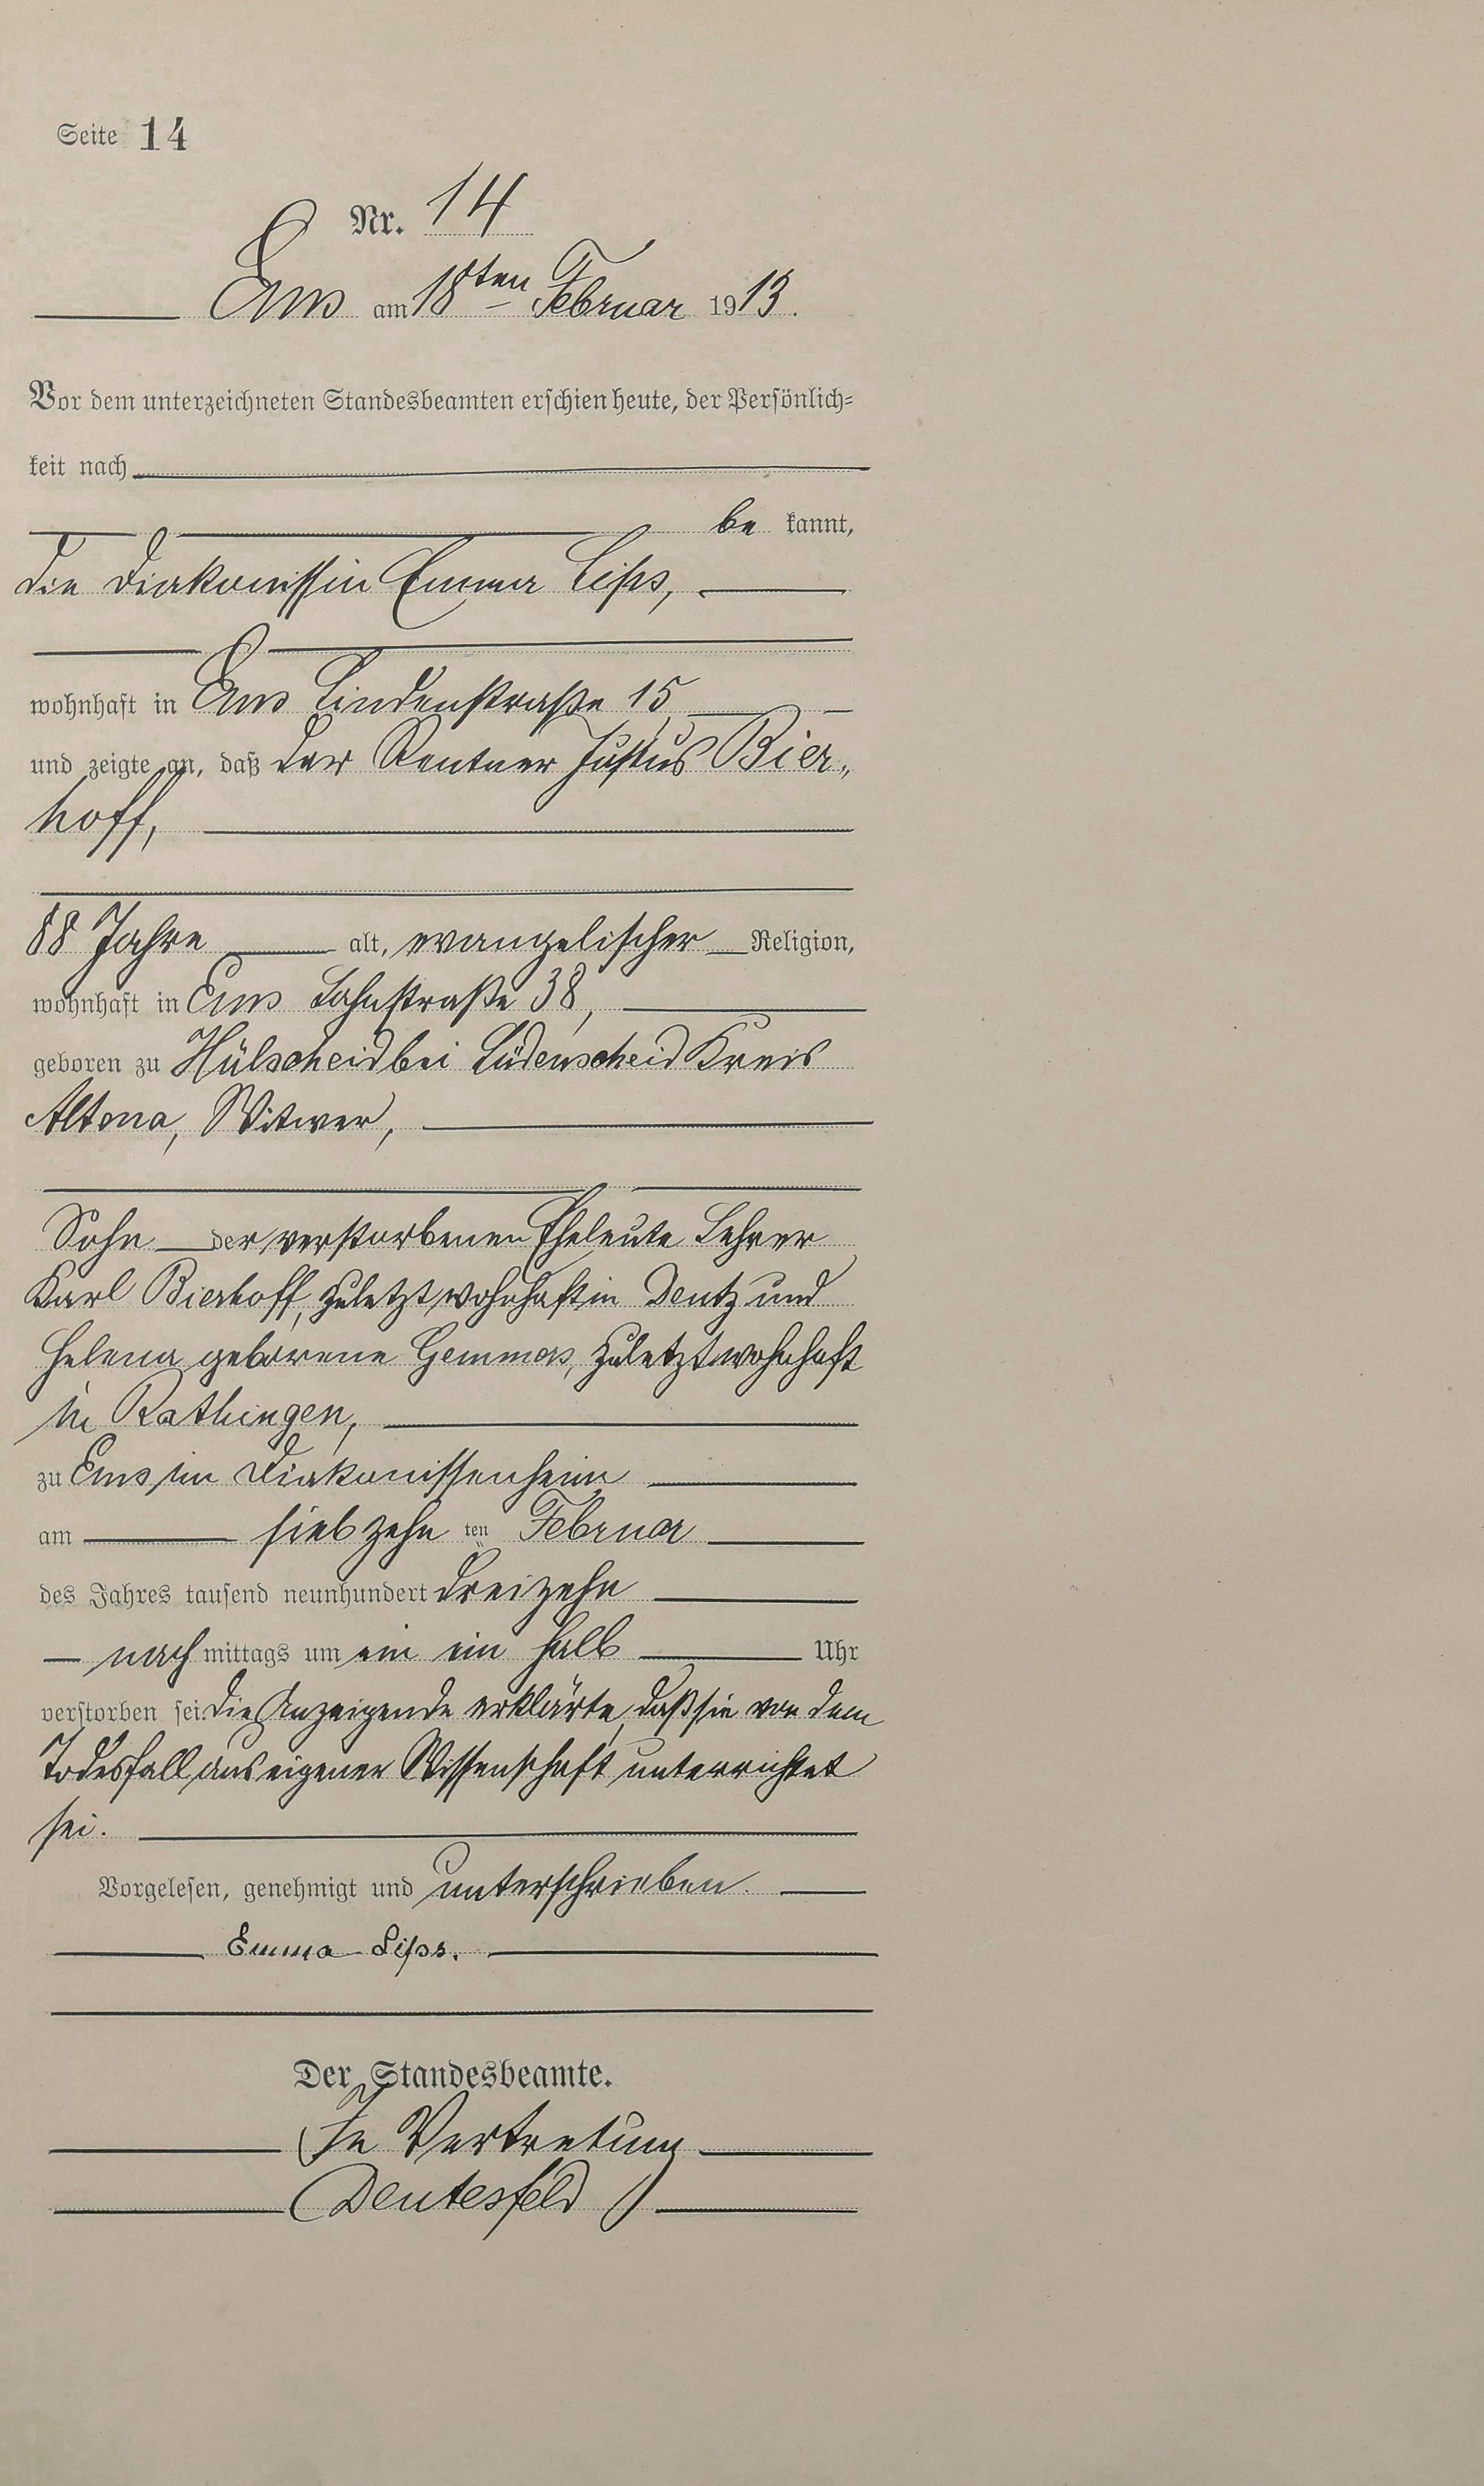 Seite 14
Nr. 14
Ems am 18ten Februar 1913.
Vor dem unterzeichneten Standesbeamten erschien heute, der Persönlich=
keit nach
be kannt,
die Diakonissin Emma Lips,
wohnhaft in Ems Lindenstraße 15,
und zeigte an, daß der Rentner Justus Bier„
hoff,
88 Jahre alt, evangelischer Religion,
wohnhaft in Ems Lahnstraße 38,
geboren zu Hülscheid bei Lüdenscheid Kreis
Altona, Witwer,
Sohn der verstorbenen Eheleute Lehrer
Karl Bierhoff, zuletzt wohnhaft in Deutz und
Helena geborene Gemmas, zuletzt wohnhaft
in Rathingen,
zu Ems im Diakonissenheim
am siebzehn ten Februar
des Jahres tausend neunhundert dreizehn
nach mittags um ein ein halb Uhr
verstorben sei. Die Anzeigende erklärte, daß sie von dem
Todesfall aus eigener Wissenschaft unterrichtet
sei.
Vorgelesen, genehmigt und unterschrieben.
Emma Lips.
Der Standesbeamte.
In Vertretung
Deutesfeld